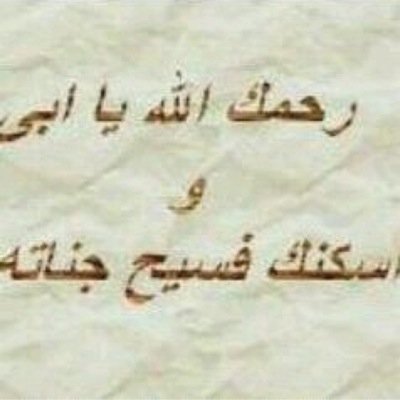 رحمك الله يا ابى
و
اسكنك فسيح جناته